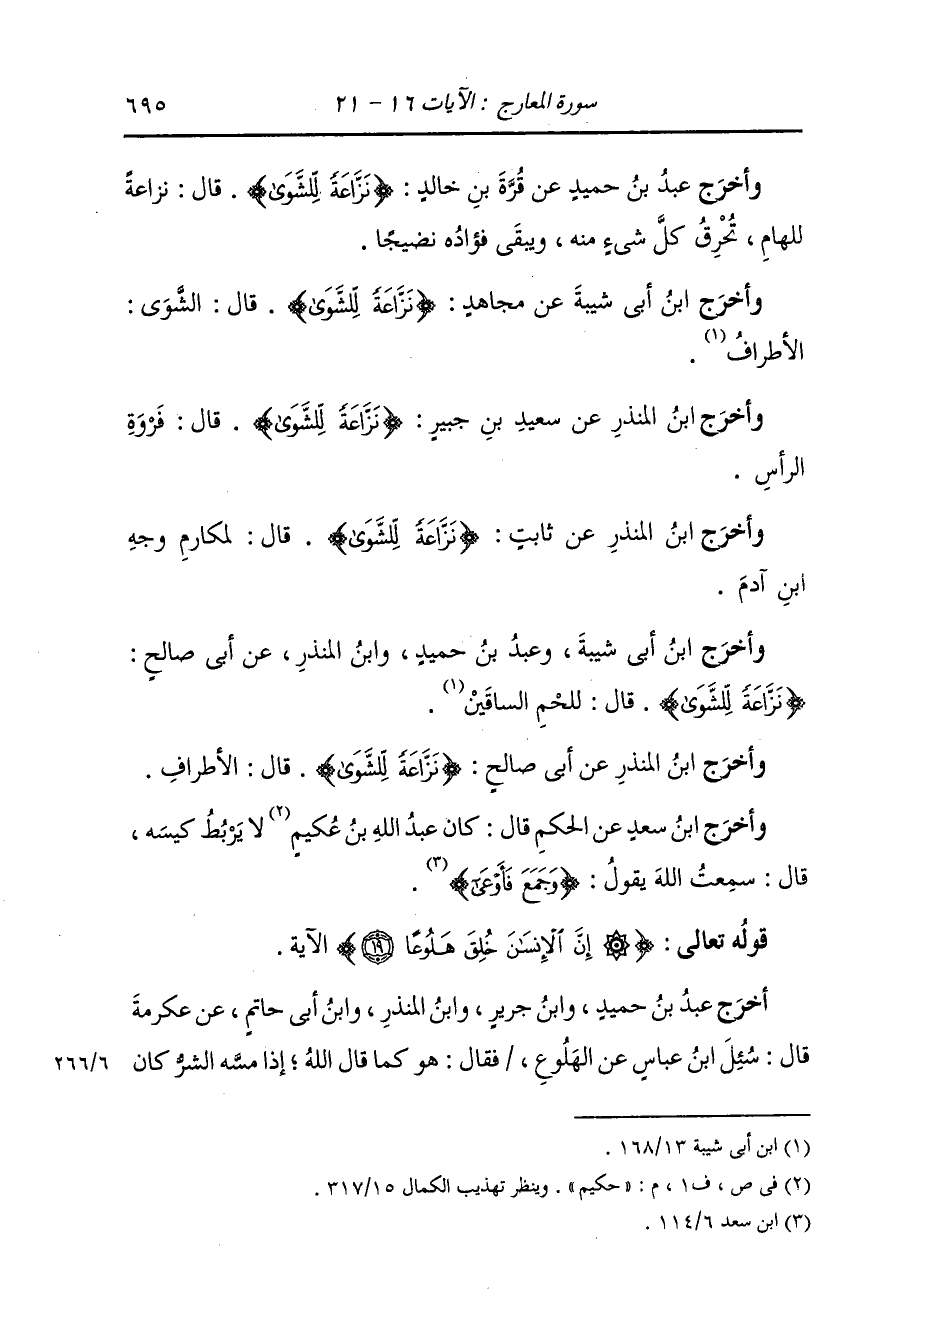 سورة المعارج : الآيات ١٦ - ٢١ ٦٩٥
وأخرَج عبدُ بنُ حميدٍ عن قُرَّةَ بنِ خالدٍ : ﴿نَزَّاعَةً لِّلشَّوَىٰ﴾ . قال : نزاعةً
للهامِ ، تُحْرِقُ كلَّ شىءٍ منه ، ويبقَى فؤادُه نضيجًا .
وأخرَج ابنُ أبى شيبةَ عن مجاهدٍ : ﴿نَزَّاعَةً لِّلشَّوَىٰ﴾ . قال : الشَّوَى :
الأطرافُ(١) .
وأخرَج ابنُ المنذرِ عن سعيدِ بنِ جبيرٍ : ﴿نَزَّاعَةً لِّلشَّوَىٰ﴾ . قال : فَرْوَةِ
الرأسِ .
وأخرَج ابنُ المنذرِ عن ثابتٍ : ﴿نَزَّاعَةً لِّلشَّوَىٰ﴾ . قال : لمكارمِ وجهِ
ابنِ آدمَ .
وأخرَج ابنُ أبى شيبةَ ، وعبدُ بنُ حميدٍ ، وابنُ المنذرِ ، عن أبى صالحٍ :
﴿نَزَّاعَةً لِّلشَّوَىٰ﴾ . قال : للحْمِ الساقَيْنْ(١) .
وأخرَج ابنُ المنذرِ عن أبى صالحٍ : ﴿نَزَّاعَةً لِّلشَّوَىٰ﴾ . قال : الأطرافِ .
وأخرَج ابنُ سعدٍ عن الحكمِ قال : كان عبدُ اللهِ بنُ عُكيمٍ(٢) لا يَرْبُطُ كيسَه ،
قال : سمِعتُ اللهَ يقولُ : ﴿وَجَمَعَ فَأَوْعَىٰٓ﴾(٣) .
قولُه تعالى : ﴿۞ إِنَّ ٱلْإِنسَٰنَ خُلِقَ هَلُوعًا ١٩﴾ الآية .
أخرَج عبدُ بنُ حميدٍ ، وابنُ جريرٍ ، وابنُ المنذرِ ، وابنُ أبى حاتمٍ ، عن عكرمةَ
قال : سُئِلَ ابنُ عباسٍ عن الهَلُوعِ ، / فقال : هو كما قال اللهُ ؛ إذا مسَّه الشرُّ كان ٢٦٦/٦
(١) ابن أبى شيبة ١٦٨/١٣ .
(٢) فى ص ، ف١ ، م : «حكيم» . وينظر تهذيب الكمال ٣١٧/١٥ .
(٣) ابن سعد ١١٤/٦ .